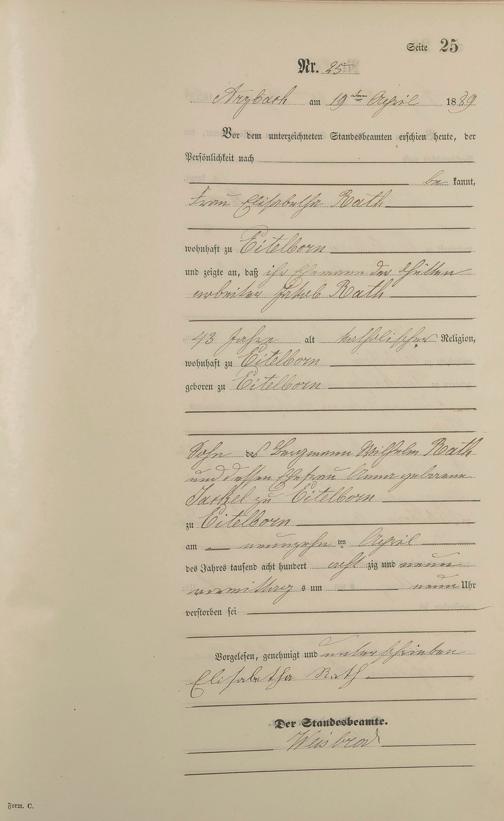 Seite 25
Nr. 25
Arzbach am 19ten April 1889
Vor dem unterzeichneten Standesbeamten erschien heute, der
Persönlichkeit nach
be kannt,
Frau Elisabetha Rath
wohnhaft zu Eitelborn
und zeigte an, daß ihr Ehemann der Hütten
arbeiter Jakob Rath
43 Jahre alt katholischer Religion,
wohnhaft zu Eitelborn
geboren zu Eitelborn
Sohn des Bergmann Wilhelm Rath
und dessen Ehefrau Anna geborene
zu Eitelborn
zu Eitelborn
am neunzehn ten April
des Jahres tausend acht hundert acht zig und neun
vormittag s um neun Uhr
verstorben sei
Vorgelesen, genehmigt und unterschrieben
Elisabetha Rath
Der Standesbeamte.
Weisbrod
Form. C.